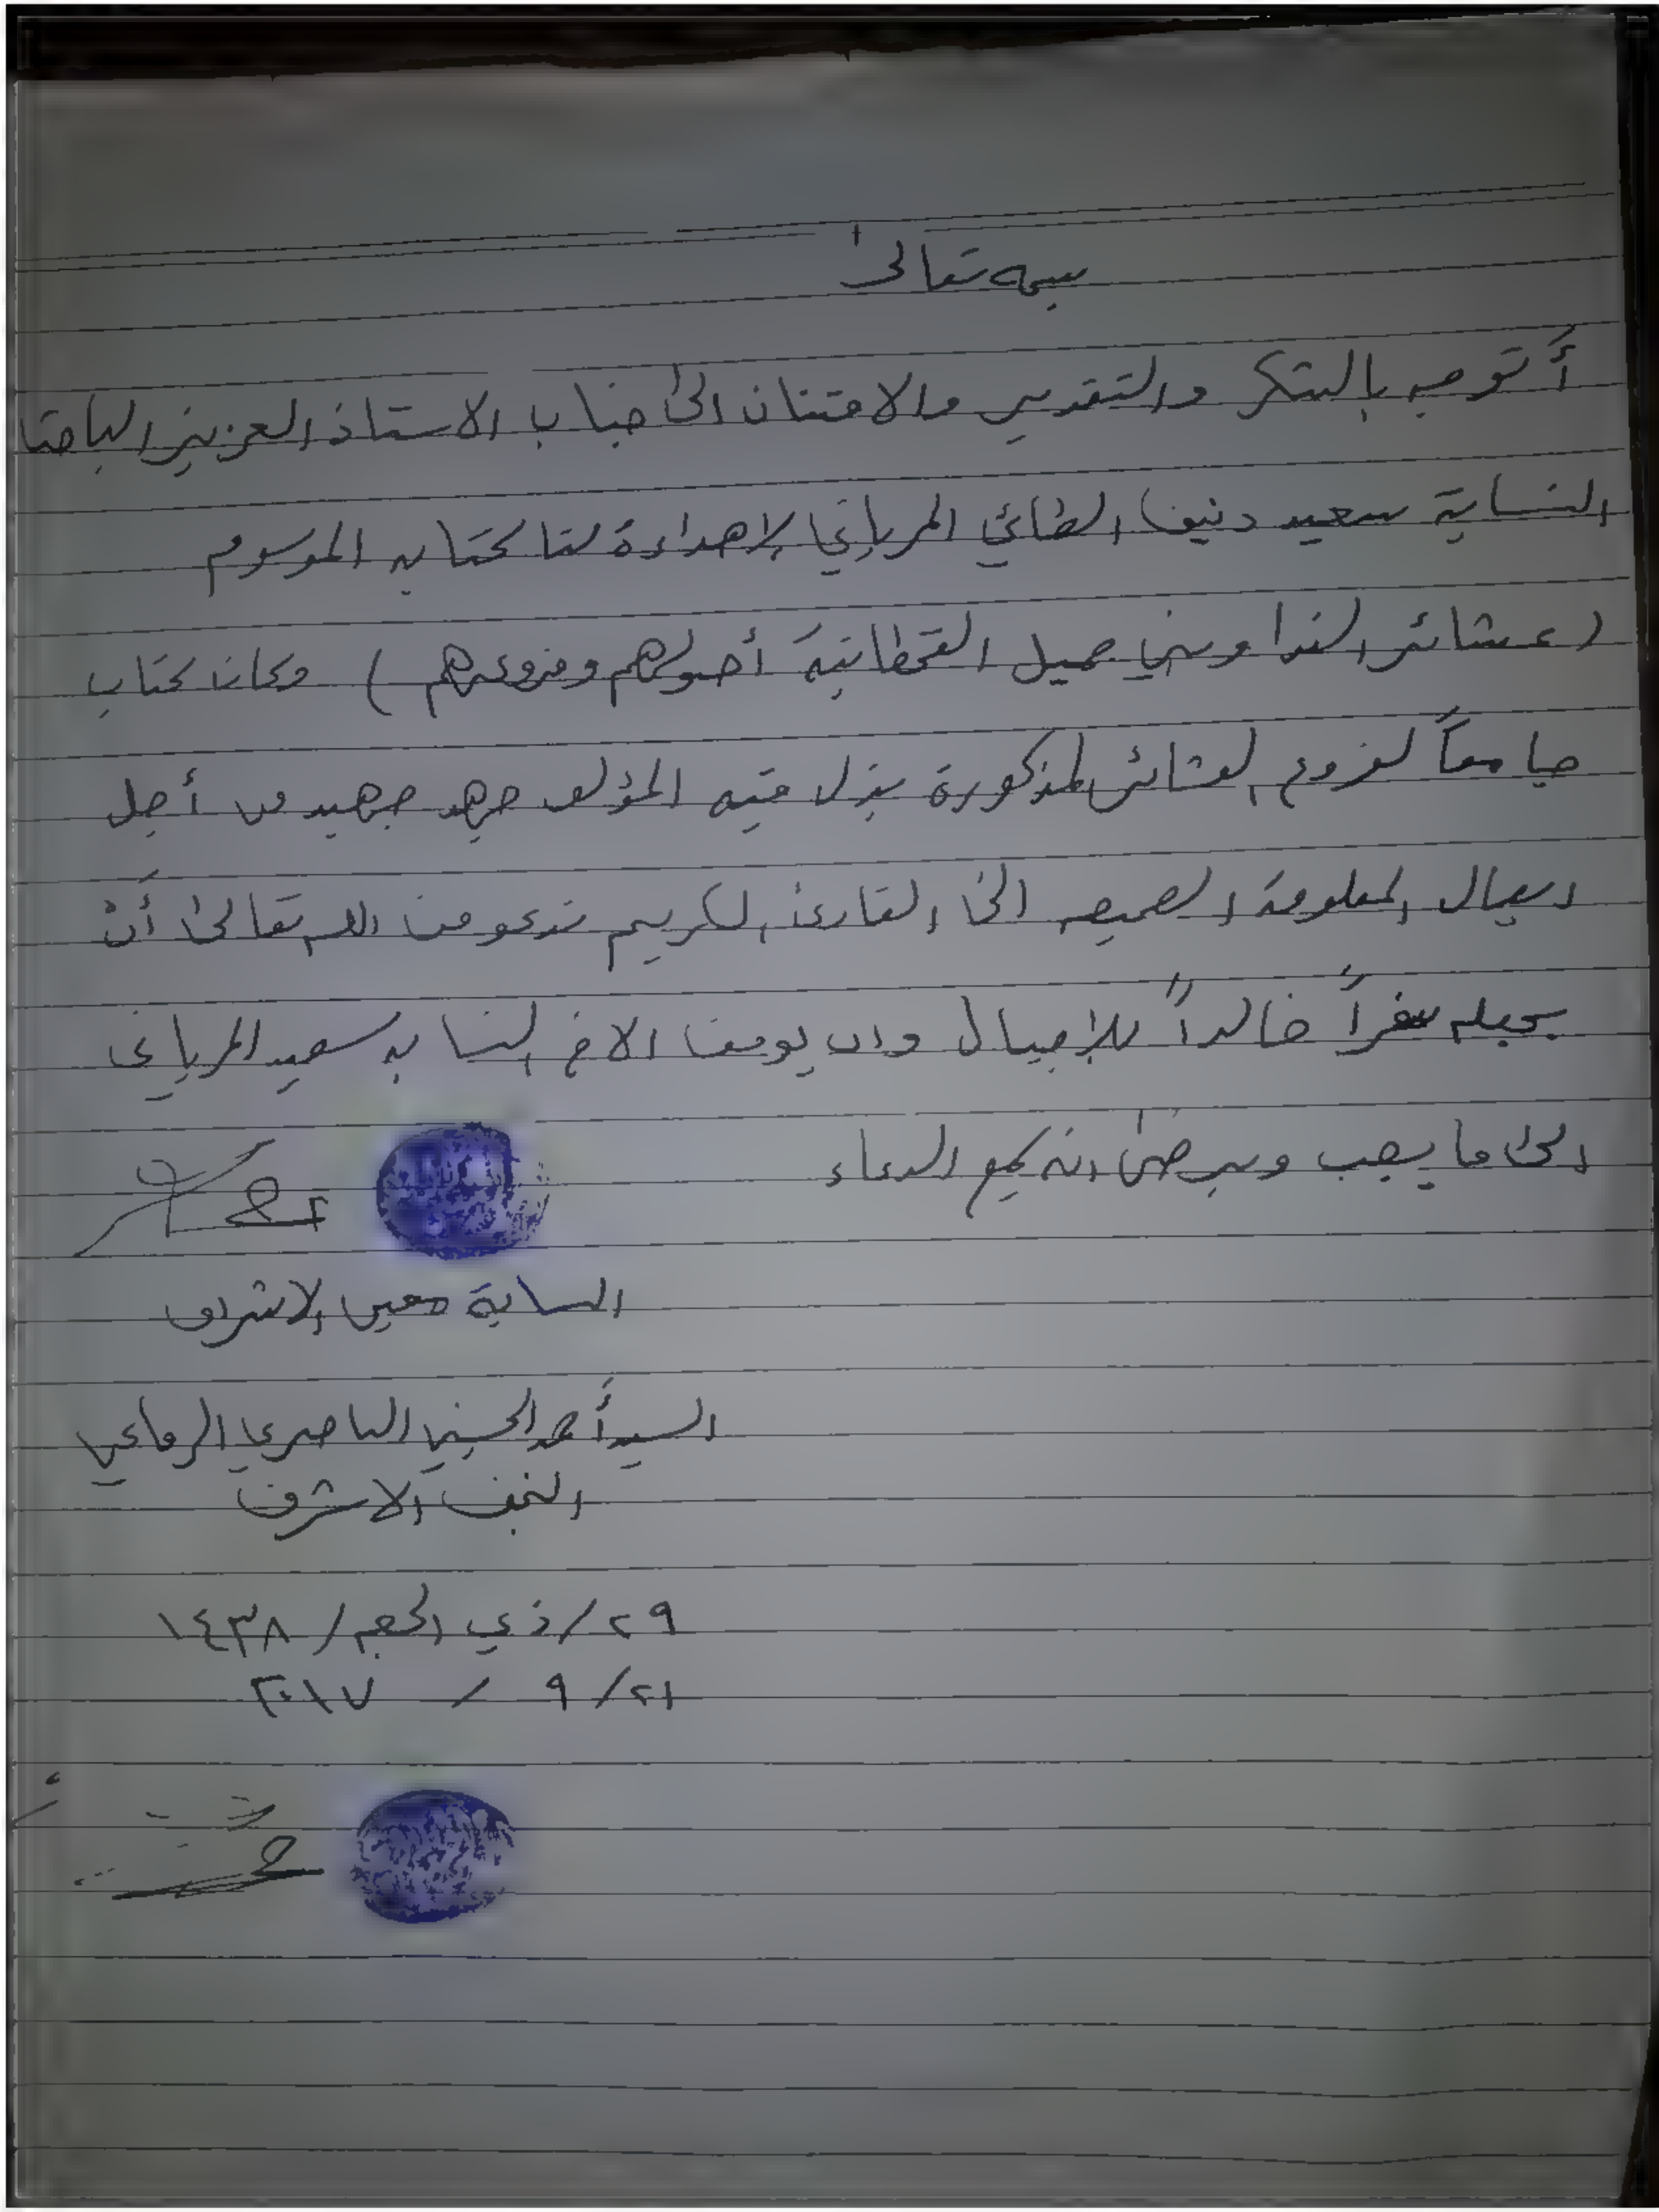 بسمه تعالى
أتوجه بالشكر والتقدير والامتنان الى جناب الاستاذ العزيز الباحث
النسابة سعيد دنيف الطائي المرياني لإهداءة لنا كتابه الموسوم
(عشائر الندا وبني جميل القحطانية أصولهم وفروعهم) وكان كتاب
جامعاً لفروع العشائر المذكورة بذل فيه المؤلف جهد جهيد من أجل
ايصال المعلومة الصحيحه الى القارئ الكريم ندعو من الله تعالى أن
يجعله سفراً خالداً للاجيال وان يوفق الاخ النسابه سعيد المرياني
الى ما يحب ويرضى انه سميع الدعاء
النسابة معين الاشراف
السيد أحمد الحسيني الناصري الرفاعي
النجف الاشرف
٢٩/ذي الحجه/١٤٣٨
٢١/٩/٢٠١٧